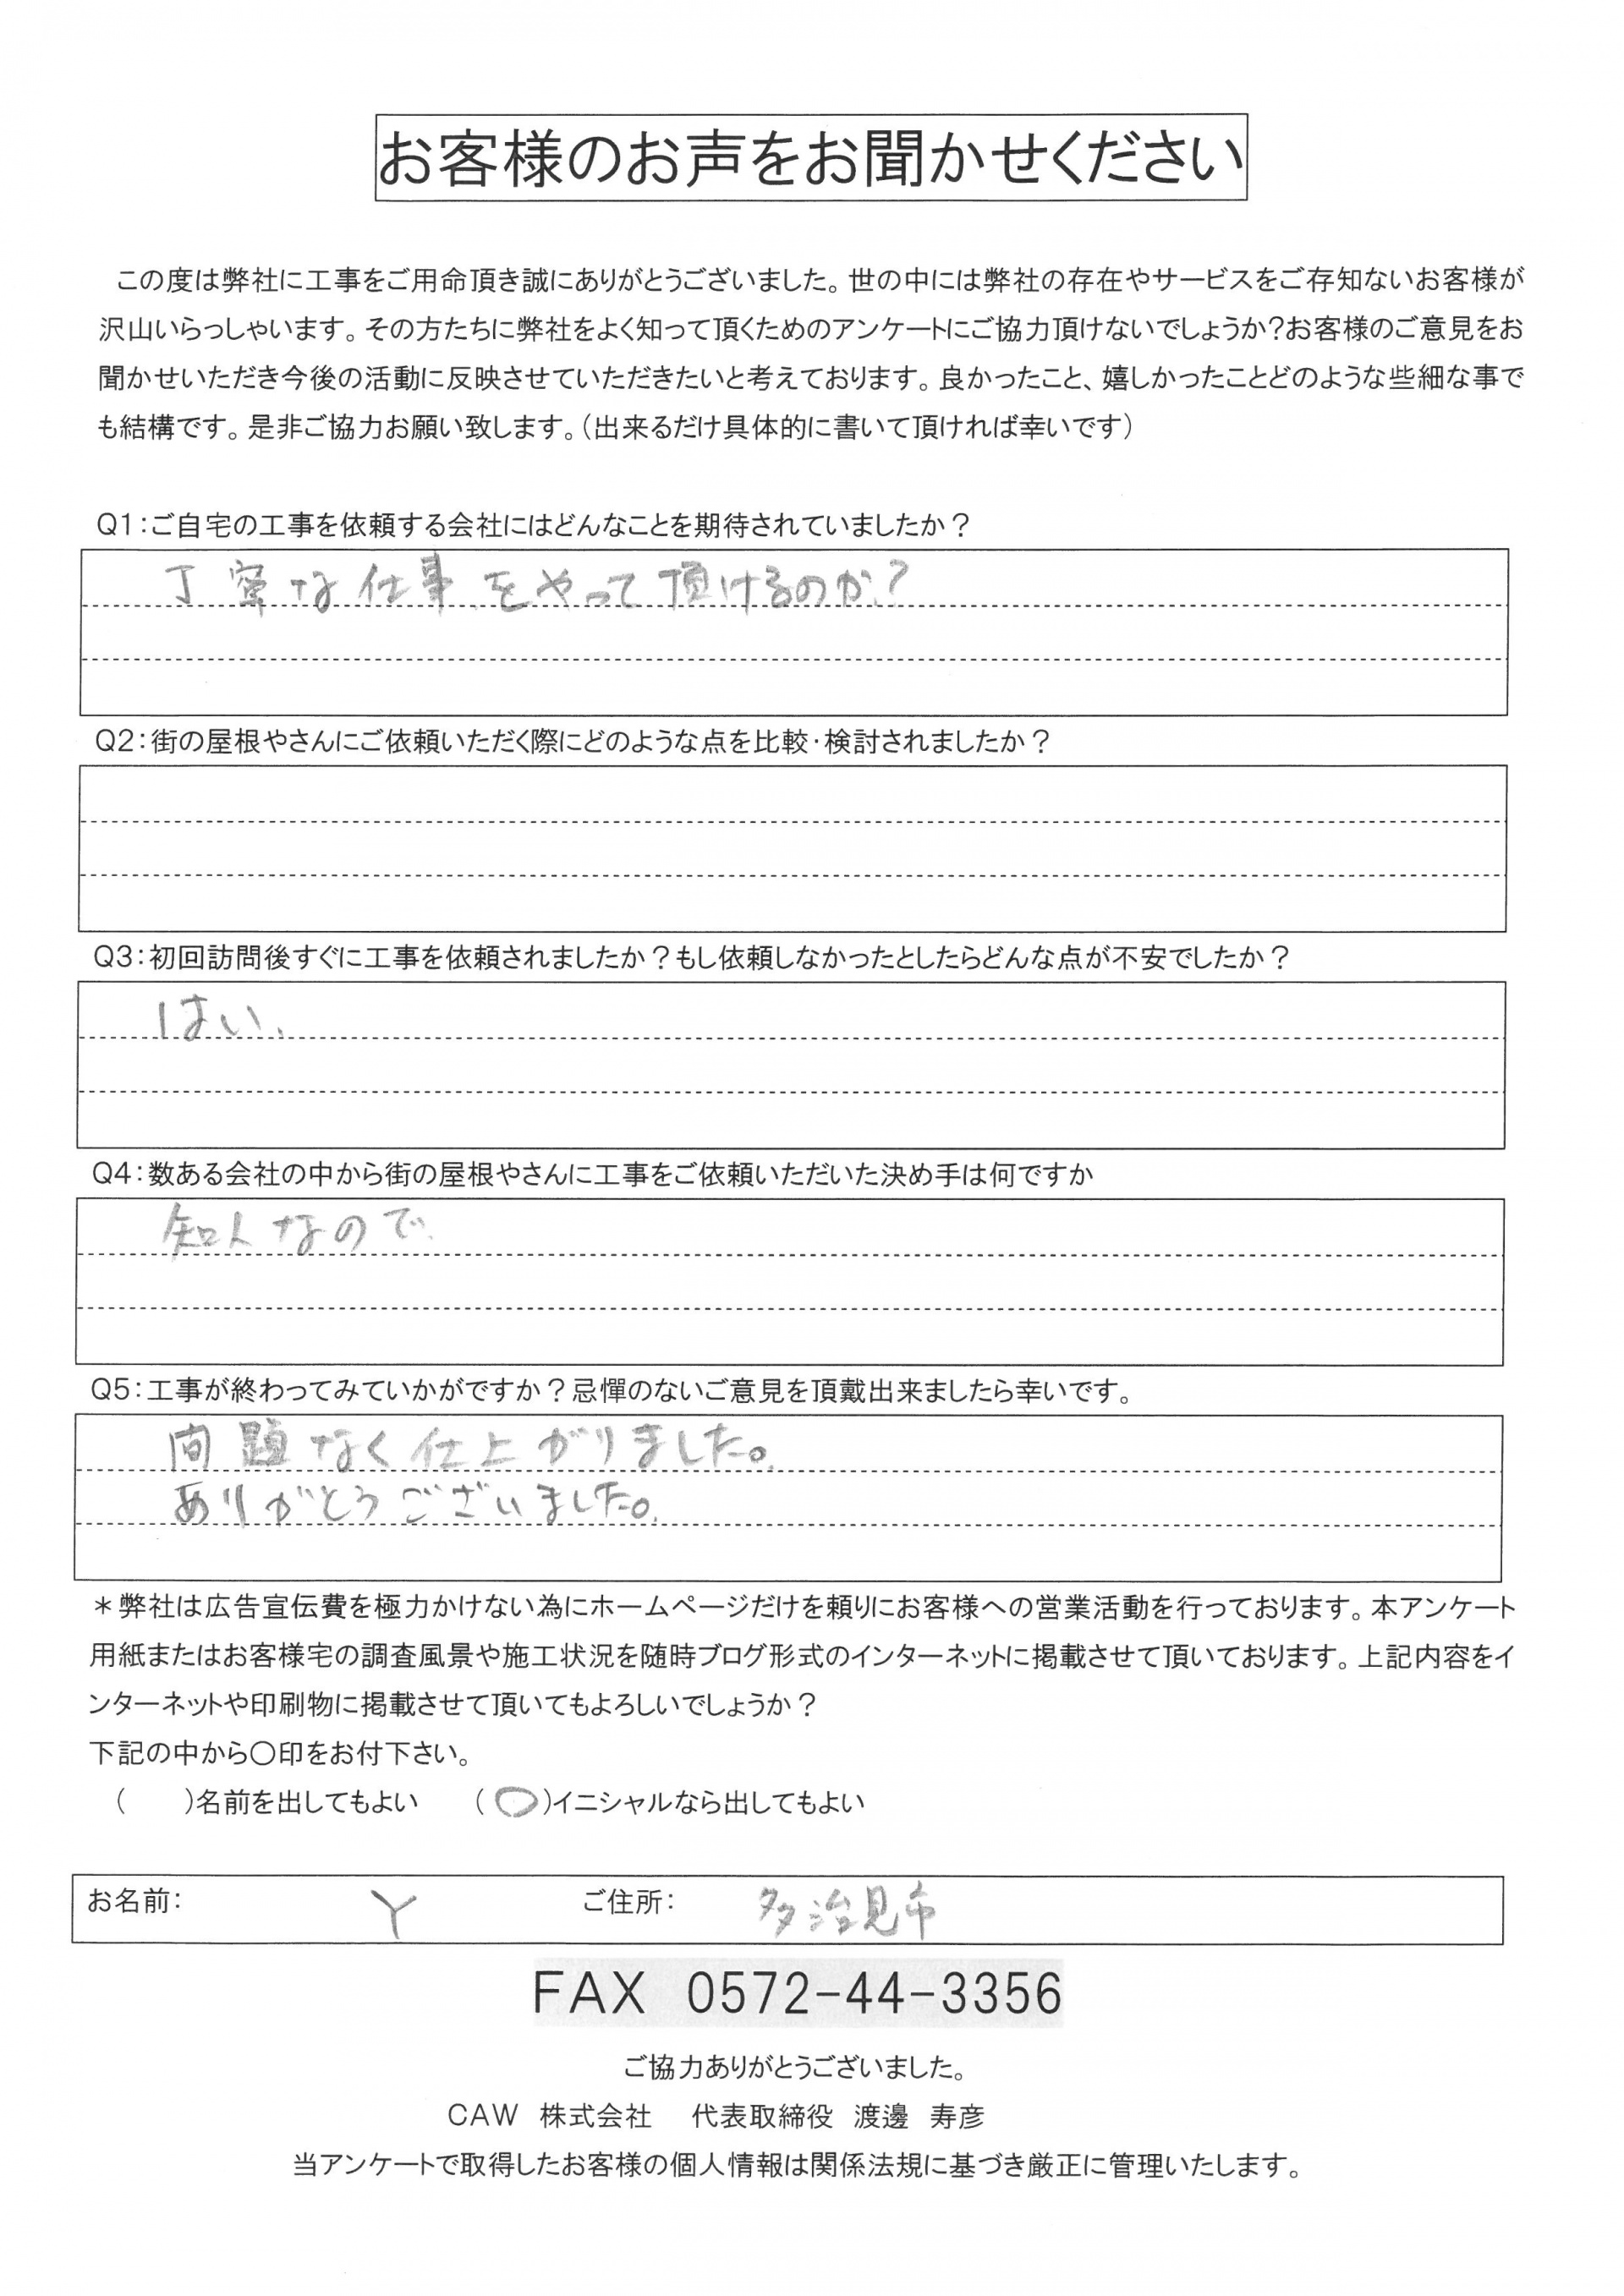 お客様のお声をお聞かせください
この度は弊社に工事をご用命頂き誠にありがとうございました。世の中には弊社の存在やサービスをご存知ないお客様が
沢山いらっしゃいます。その方たちに弊社をよく知って頂くためのアンケートにご協力頂けないでしょうか?お客様のご意見をお
聞かせいただき今後の活動に反映させていただきたいと考えております。良かったこと、嬉しかったことどのような些細な事で
も結構です。是非ご協力お願い致します。(出来るだけ具体的に書いて頂ければ幸いです)
Q1:ご自宅の工事を依頼する会社にはどんなことを期待されていましたか?
丁寧な仕事をやって頂けるのか?
Q2:街の屋根やさんにご依頼いただく際にどのような点を比較・検討されましたか?
Q3:初回訪問後すぐに工事を依頼されましたか?もし依頼しなかったとしたらどんな点が不安でしたか?
はい、
Q4:数ある会社の中から街の屋根やさんに工事をご依頼いただいた決め手は何ですか
知人なので
Q5:工事が終わってみていかがですか?忌憚のないご意見を頂戴出来ましたら幸いです。
問題なく仕上がりました。
ありがとうございました。
*弊社は広告宣伝費を極力かけない為にホームページだけを頼りにお客様への営業活動を行っております。本アンケート
用紙またはお客様宅の調査風景や施工状況を随時ブログ形式のインターネットに掲載させて頂いております。上記内容をイ
ンターネットや印刷物に掲載させて頂いてもよろしいでしょうか?
下記の中から〇印をお付下さい。
( )名前を出してもよい (〇)イニシャルなら出してもよい
お名前: Y ご住所: 多治見市
FAX 0572-44-3356
ご協力ありがとうございました。
CAW 株式会社 代表取締役 渡邊 寿彦
当アンケートで取得したお客様の個人情報は関係法規に基づき厳正に管理いたします。